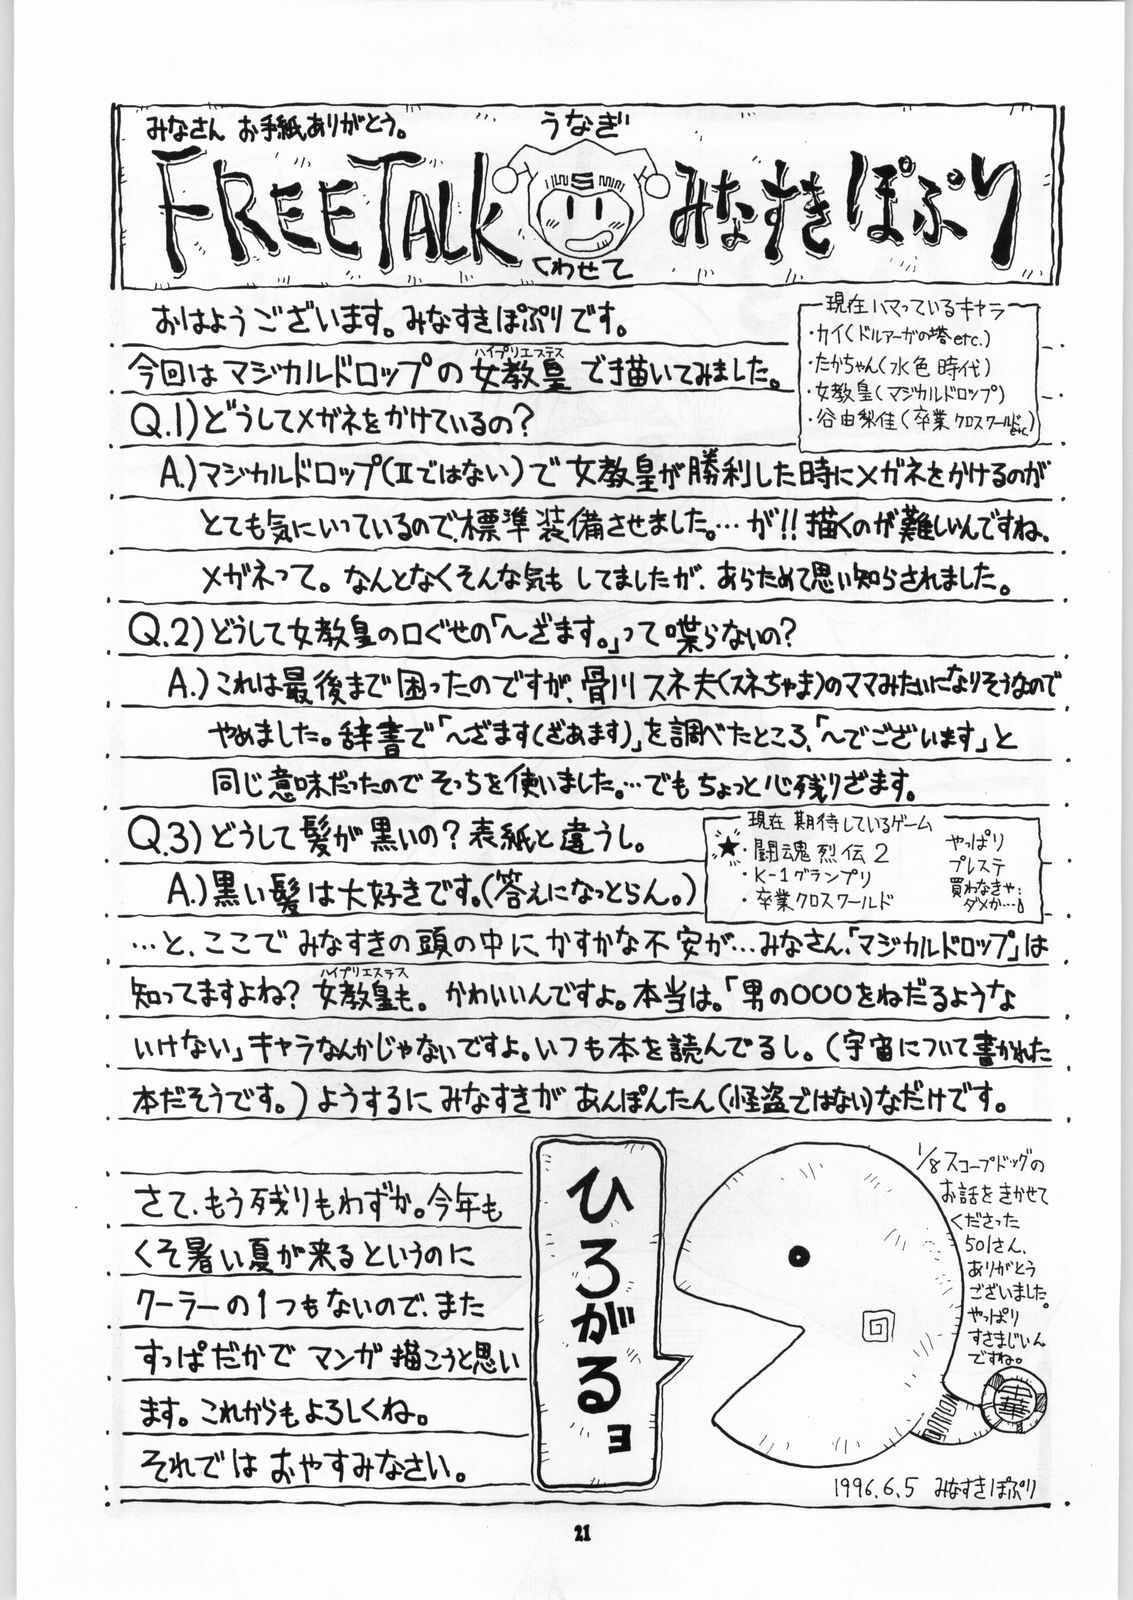 みなさん お手紙ありがとう。
うなぎ
FREE TALK みなすきぽぷり
くわせて
おはようございます。みなすきぽぷりです。
今回はマジカルドロップの女教皇で描いてみました。
ハイプリエステス
現在ハマっているキャラ
・カイ(ドルアーガの塔etc.)
・たかちゃん(水色時代)
・女教皇(マジカルドロップ)
・谷由梨佳(卒業クロスワールドetc.)
Q.1)どうしてメガネをかけているの?
A.)マジカルドロップ(Ⅱではない)で女教皇が勝利した時にメガネをかけるのが
とても気にいっているので、標準装備させました。…が!!描くのが難しいんですね、
メガネって。なんとなくそんな気もしてましたが、あらためて思い知らされました。
Q.2)どうして女教皇の口ぐせの「〜ざます。」って喋らないの?
A.)これは最後まで困ったのですが、骨川スネ夫(スネちゃま)のママみたいになりそうなので
やめました。辞書で「〜ざます(ざあます)」を調べたところ、「〜でございます」と
同じ意味だったのでそっちを使いました。…でもちょっと心残りざます。
Q.3)どうして髪が黒いの?表紙と違うし。
A.)黒い髪は大好きです。(答えになっとらん。)
現在期待しているゲーム
★・闘魂烈伝2
・K-1グランプリ
・卒業クロスワールド
やっぱり
プレステ
買わなきゃ
ダメか…。
…と、ここでみなすきの頭の中にかすかな不安が…みなさん、「マジカルドロップ」は
知ってますよね?女教皇も。かわいいんですよ。本当は。「男の○○○をねだるような
ハイプリエステス
いけない」キャラなんかじゃないですよ。いつも本を読んでるし。(宇宙について書かれた
本だそうです。)ようするにみなすきがあんぽんたん(怪盗ではない)なだけです。
さて、もう残りもわずか。今年も
くそ暑い夏が来るというのに
クーラーの1つもないので、また
すっぱだかでマンガ描こうと思い
ます。これからもよろしくね。
それではおやすみなさい。
ひろがるヨ
回
1/8スコープドッグの
お話をきかせて
くださった
501さん、
ありがとう
ございました。
やっぱり
すさまじいん
ですね。
1996.6.5 みなすきぽぷり
21